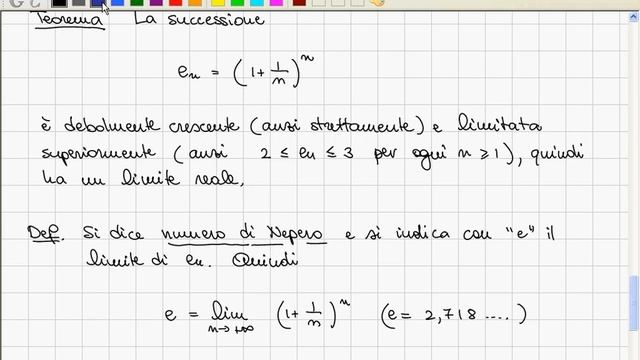 Teorema La successione
en = (1 + 1/n)^n
è debolmente crescente (anzi strettamente) e limitata
superiormente (anzi 2 ≤ en ≤ 3 per ogni n ≥ 1), quindi
ha un limite reale.
Def. Si dice numero di Nepero e si indica con "e" il
limite di en. Quindi
e = lim n→+∞ (1 + 1/n)^n (e = 2,718....)